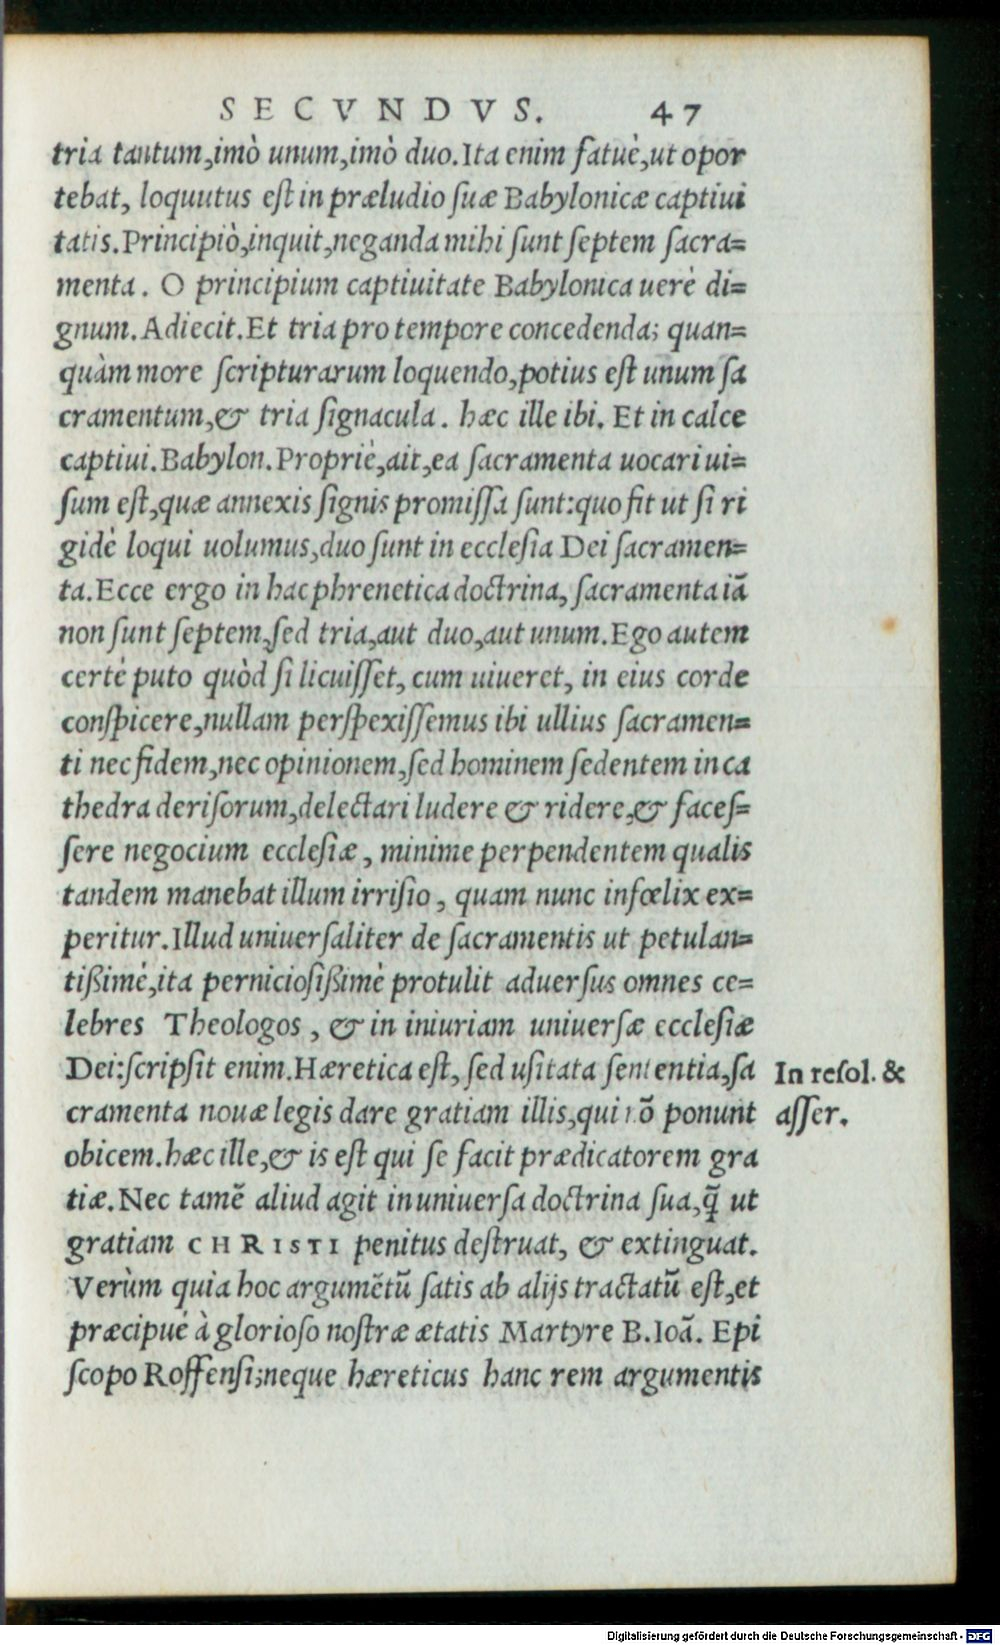 SECVNDVS. 47
tria tantum,imò unum,imò duo.Ita enim fatuè,ut opor
tebat, loquutus eſt in præludio ſuæ Babylonicæ captiui
tatis.Principiò,inquit,neganda mihi ſunt ſeptem ſacra=
menta. O principium captiuitate Babylonica uerè di=
gnum.Adiecit.Et tria pro tempore concedenda; quan=
quàm more ſcripturarum loquendo,potius eſt unum ſa
cramentum,& tria ſignacula. hæc ille ibi. Et in calce
captiui.Babylon.Propriè,ait,ea ſacramenta uocari ui=
ſum eſt,quæ annexis ſignis promiſſa ſunt:quo fit ut ſi ri
gidè loqui uolumus,duo ſunt in eccleſia Dei ſacramen=
ta.Ecce ergo in hac phrenetica doctrina, ſacramenta iã
non ſunt ſeptem,ſed tria,aut duo,aut unum.Ego autem
certè puto quòd ſi licuiſſet, cum uiueret, in eius corde
conſpicere,nullam perſpexiſſemus ibi ullius ſacramen=
ti nec fidem,nec opinionem,ſed hominem ſedentem in ca
thedra deriſorum,delectari ludere & ridere,& faceſ=
ſere negocium eccleſiæ, minime perpendentem qualis
tandem manebat illum irriſio, quam nunc infœlix ex=
peritur.Illud uniuerſaliter de ſacramentis ut petulan=
tißimè,ita pernicioſißimè protulit aduerſus omnes ce=
lebres Theologos, & in iniuriam uniuerſæ eccleſiæ
Dei:ſcripſit enim.Hæretica eſt, ſed uſitata ſententia,ſa
cramenta nouæ legis dare gratiam illis,qui nõ ponunt
obicem.hæc ille,& is eſt qui ſe facit prædicatorem gra
tiæ.Nec tamẽ aliud agit in uniuerſa doctrina ſua,q̃ ut
gratiam CHRISTI penitus deſtruat, & extinguat.
Verùm quia hoc argumẽtũ ſatis ab alijs tractatũ eſt,et
præcipuè à glorioſo noſtræ ætatis Martyre B.Ioã. Epi
ſcopo Roffenſi;neque hæreticus hanc rem argumentis
In reſol. &
aſſer.
Digitalisierung gefördert durch die Deutsche Forschungsgemeinschaft - DFG